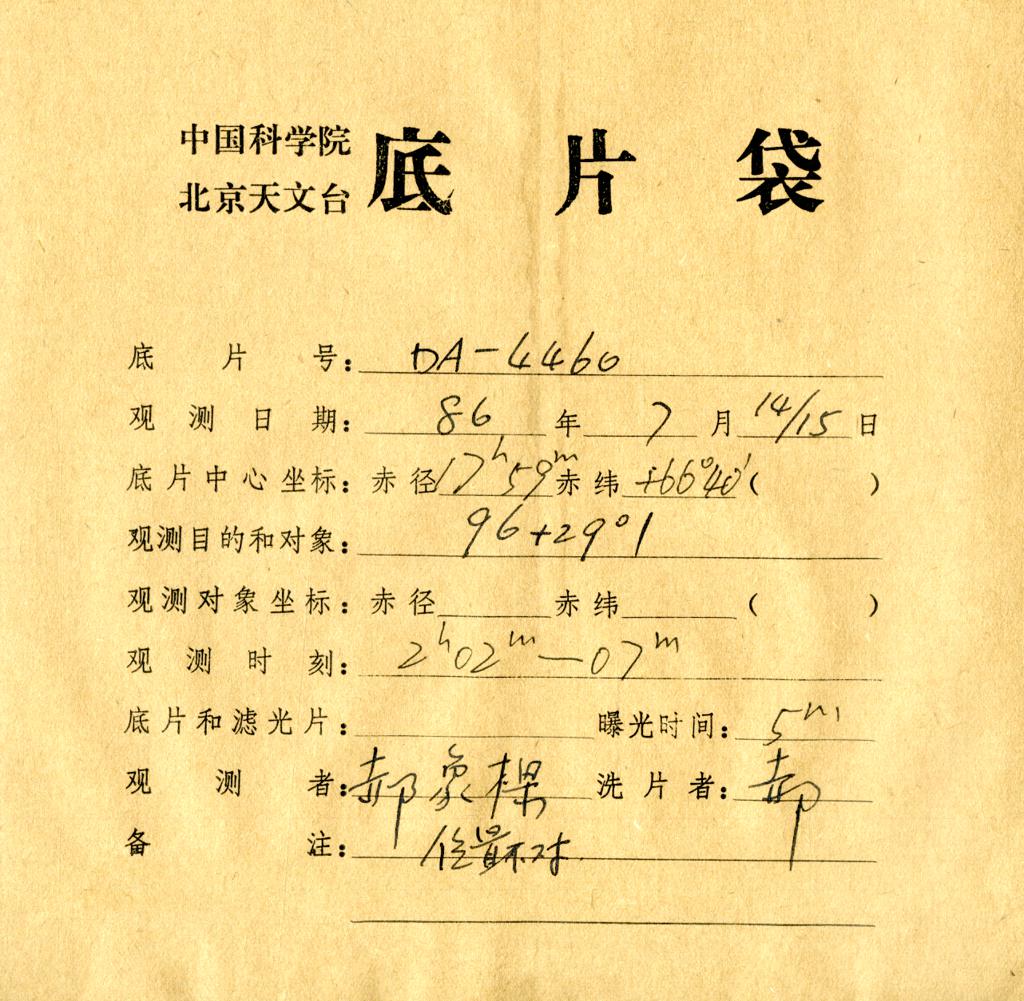 中国科学院
北京天文台
底片袋
底片号: DA-4460
观测日期: 86年7月14/15日
底片中心坐标: 赤径17h59m赤纬+66°40′( )
观测目的和对象: 96+29°1
观测对象坐标: 赤径 赤纬 ( )
观测时刻: 2h02m—07m
底片和滤光片: 曝光时间: 5m
观测者: 郝象樑 洗片者: 郝
备注: 位置不对.